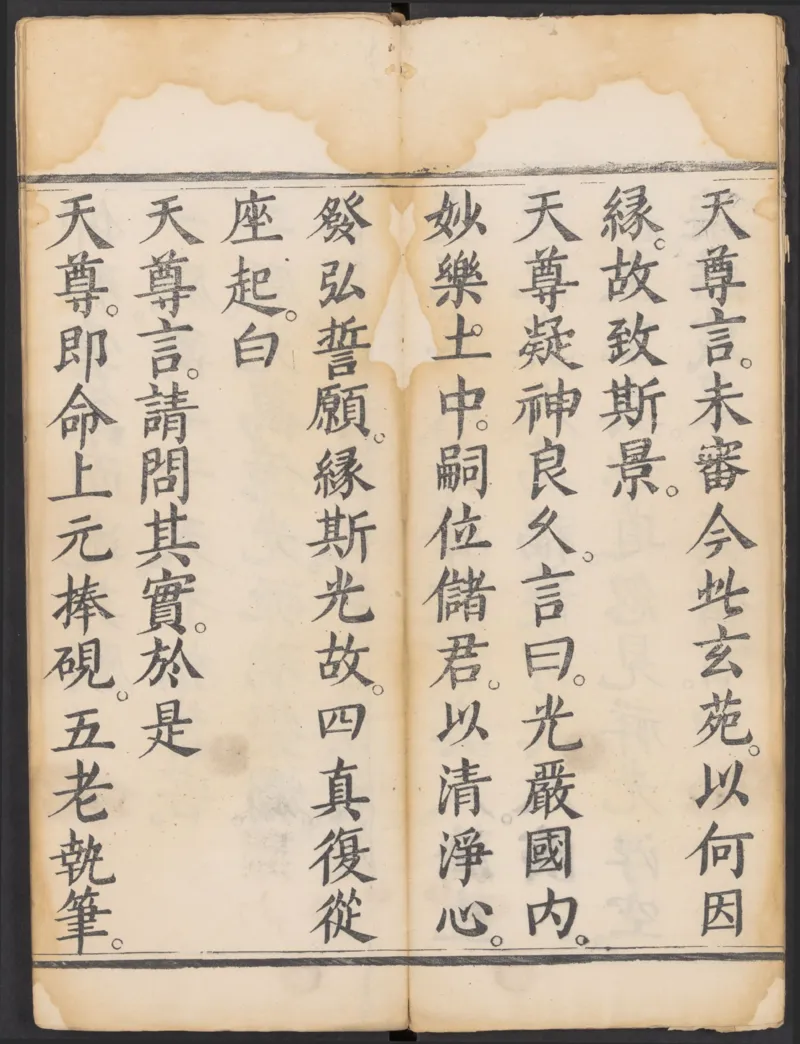 天尊言。未審今此玄苑。以何因
緣。故致斯景。
天尊凝神良久。言曰。光嚴國内。
妙樂土中。嗣位儲君。以清淨心。
發弘誓願。緣斯光故。四真復從
座起。白
天尊言。請問其實。於是
天尊。即命上元捧硯。五老執筆。